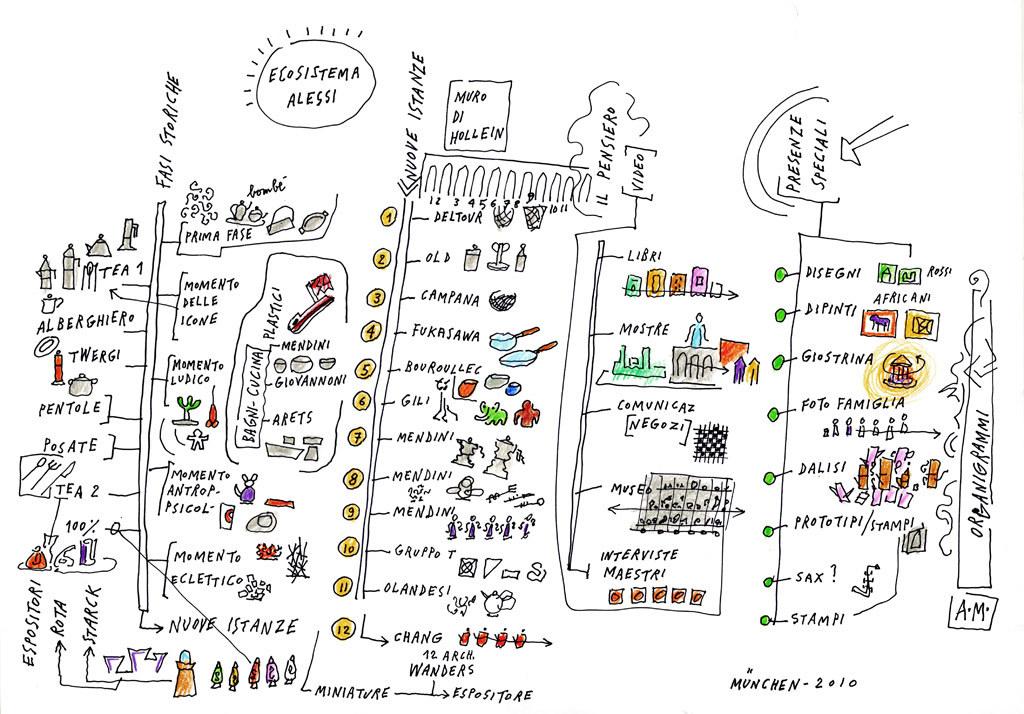 ECOSISTEMA
ALESSI
FASI STORICHE
bombé
PRIMA FASE
TEA 1
ALBERGHIERO
TWERGI
PENTOLE
POSATE
TEA 2
100%
ESPOSITORI
ROTA
STARCK
MOMENTO
DELLE
ICONE
MOMENTO
LUDICO
MOMENTO
ANTROP-
PSICOL-
MOMENTO
ECLETTICO
NUOVE ISTANZE
BAGNI-CUCINA
PLASTICI
MENDINI
GIOVANNONI
ARETS
NUOVE ISTANZE
MURO
DI
HOLLEIN
1 2 3 4 5 6 7 8 9 10 11
1 DELTOUR
2 OLD
3 CAMPANA
4 FUKASAWA
5 BOUROULLEC
6 GILI
7 MENDINI
8 MENDINI
9 MENDINI
10 GRUPPO T
11 OLANDESI
12 CHANG
12 ARCH.
WANDERS
MINIATURE
ESPOSITORE
IL PENSIERO
VIDEO
LIBRI
MOSTRE
COMUNICAZ
NEGOZI
MUSEO
INTERVISTE
MAESTRI
PRESENZE
SPECIALI
DISEGNI
ROSSI
AFRICANI
DIPINTI
GIOSTRINA
FOTO FAMIGLIA
DALISI
PROTOTIPI/STAMPI
SAX?
STAMPI
ORGANIGRAMMI
A.M.
MÜNCHEN-2010